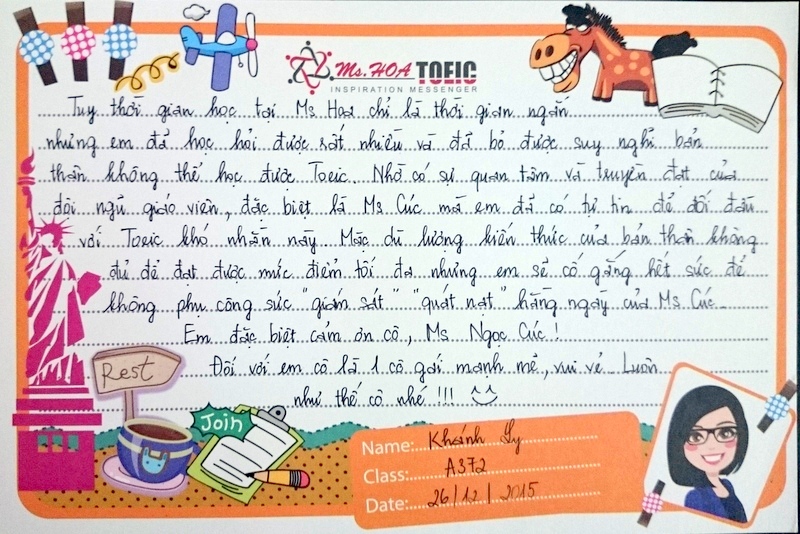 Ms.HOA TOEIC
INSPIRATION MESSENGER
Tuy thời gian học tại Ms Hoa chỉ là thời gian ngắn
nhưng em đã học hỏi được rất nhiều và đã bỏ được suy nghĩ bản
thân không thể học được Toeic. Nhờ có sự quan tâm và truyền đạt của
đội ngũ giáo viên, đặc biệt là Ms Cúc mà em đã có tự tin để đối đầu
với Toeic khó nhằn này. Mặc dù lượng kiến thức của bản thân không
đủ để đạt được mức điểm tối đa nhưng em sẽ cố gắng hết sức để
không phụ công sức "giám sát" "quát nạt" hằng ngày của Ms Cúc.
Em đặc biệt cảm ơn cô, Ms Ngọc Cúc!
Đối với em cô là 1 cô gái mạnh mẽ, vui vẻ. Luôn
như thế cô nhé !!!
Rest
Join
Name: Khánh Ly
Class: A372
Date: 26/12/2015